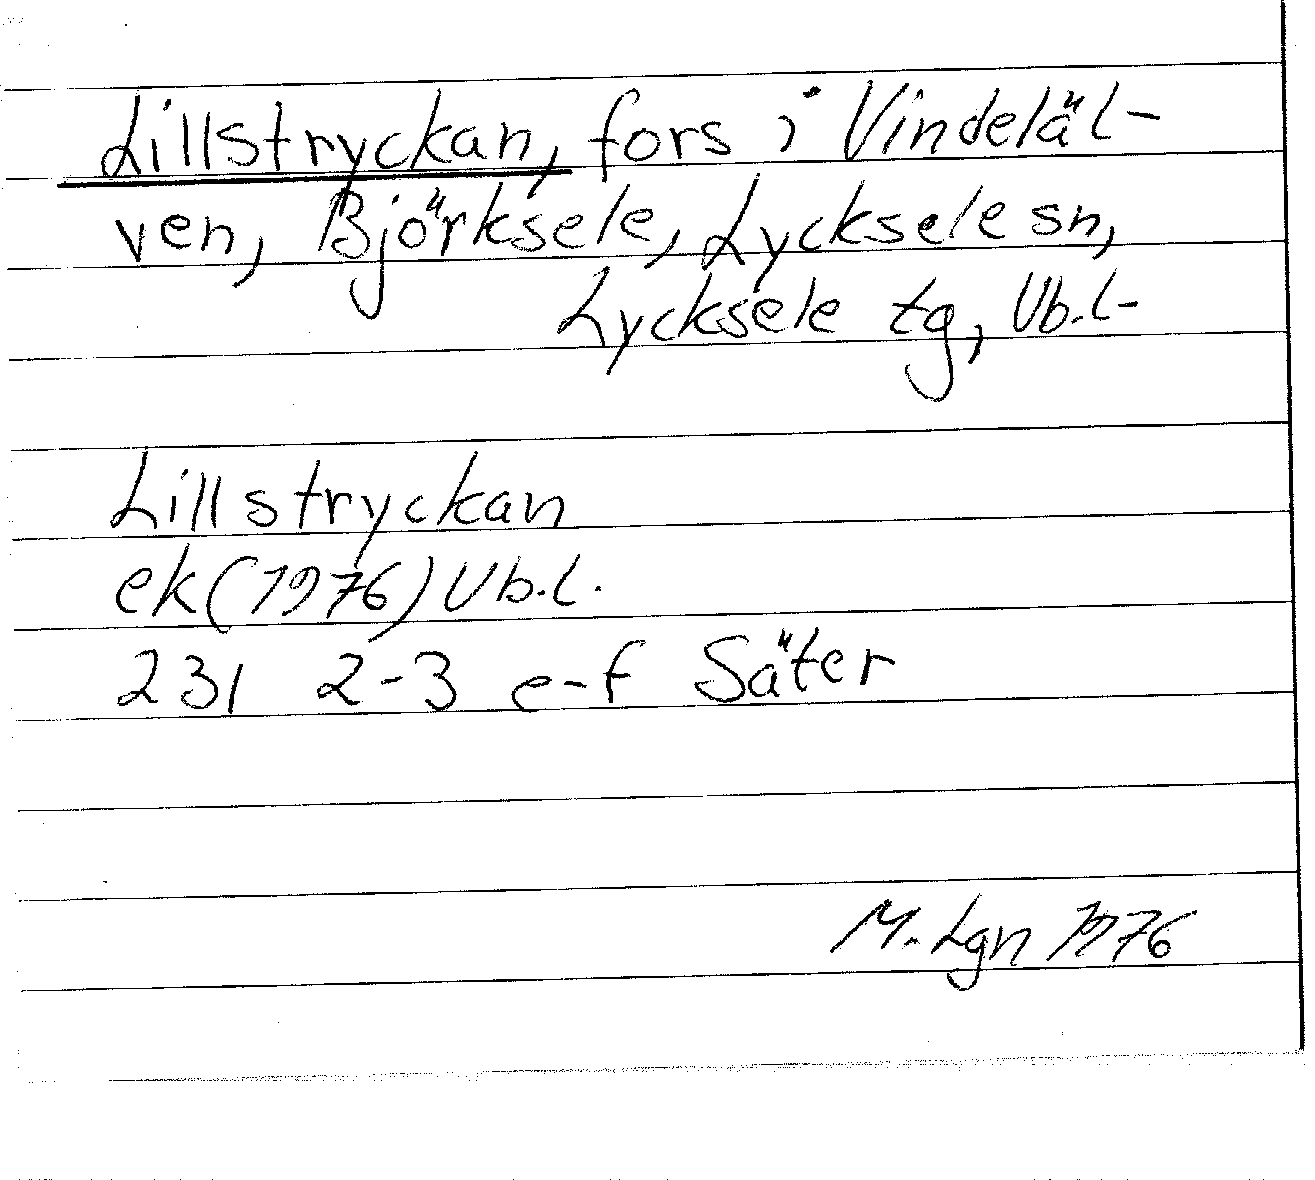 Lillstryckan, fors i Vindeläl-
ven, Björksele, Lycksele sn,
Lycksele tg, Vb.l-
Lillstryckan
ek(1976) Vb.l.
231 2-3 e-f Säter
M. Lgn 1976